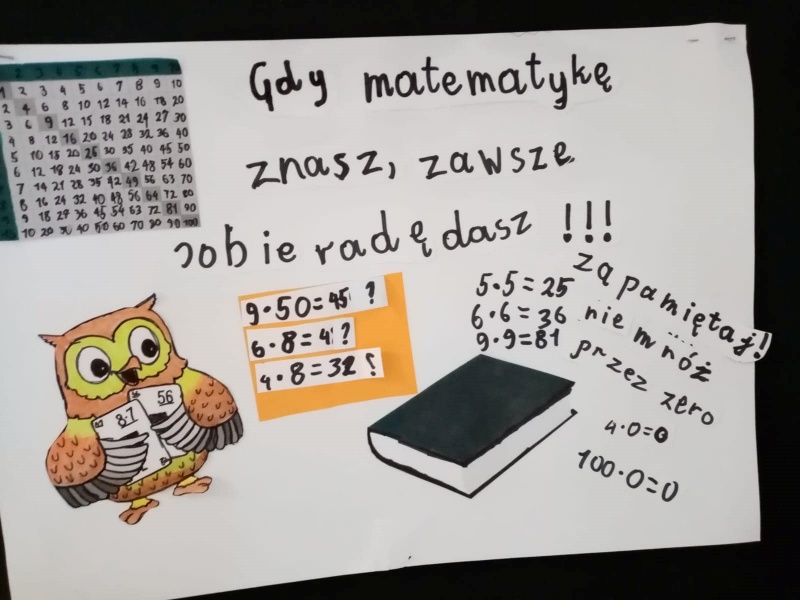 1 2 3 4 5 6 7 8 9 10
2 4 6 8 10 12 14 16 18 20
3 6 9 12 15 18 21 24 27 30
4 8 12 16 20 24 28 32 36 40
5 10 15 20 25 30 35 40 45 50
6 12 18 24 30 36 42 48 54 60
7 14 21 28 35 42 49 56 63 70
8 16 24 32 40 48 56 64 72 80
9 18 27 36 45 54 63 72 81 90
10 20 30 40 50 60 70 80 90 100
Gdy matematykę
znasz, zawsze
sobie radę dasz !!!
9·50=45 ?
6·8=4 ?
4·8=32 ?
5·5=25
6·6=36
9·9=81
zapamiętaj!
nie mnóż
przez zero
4·0=0
100·0=0
81
56